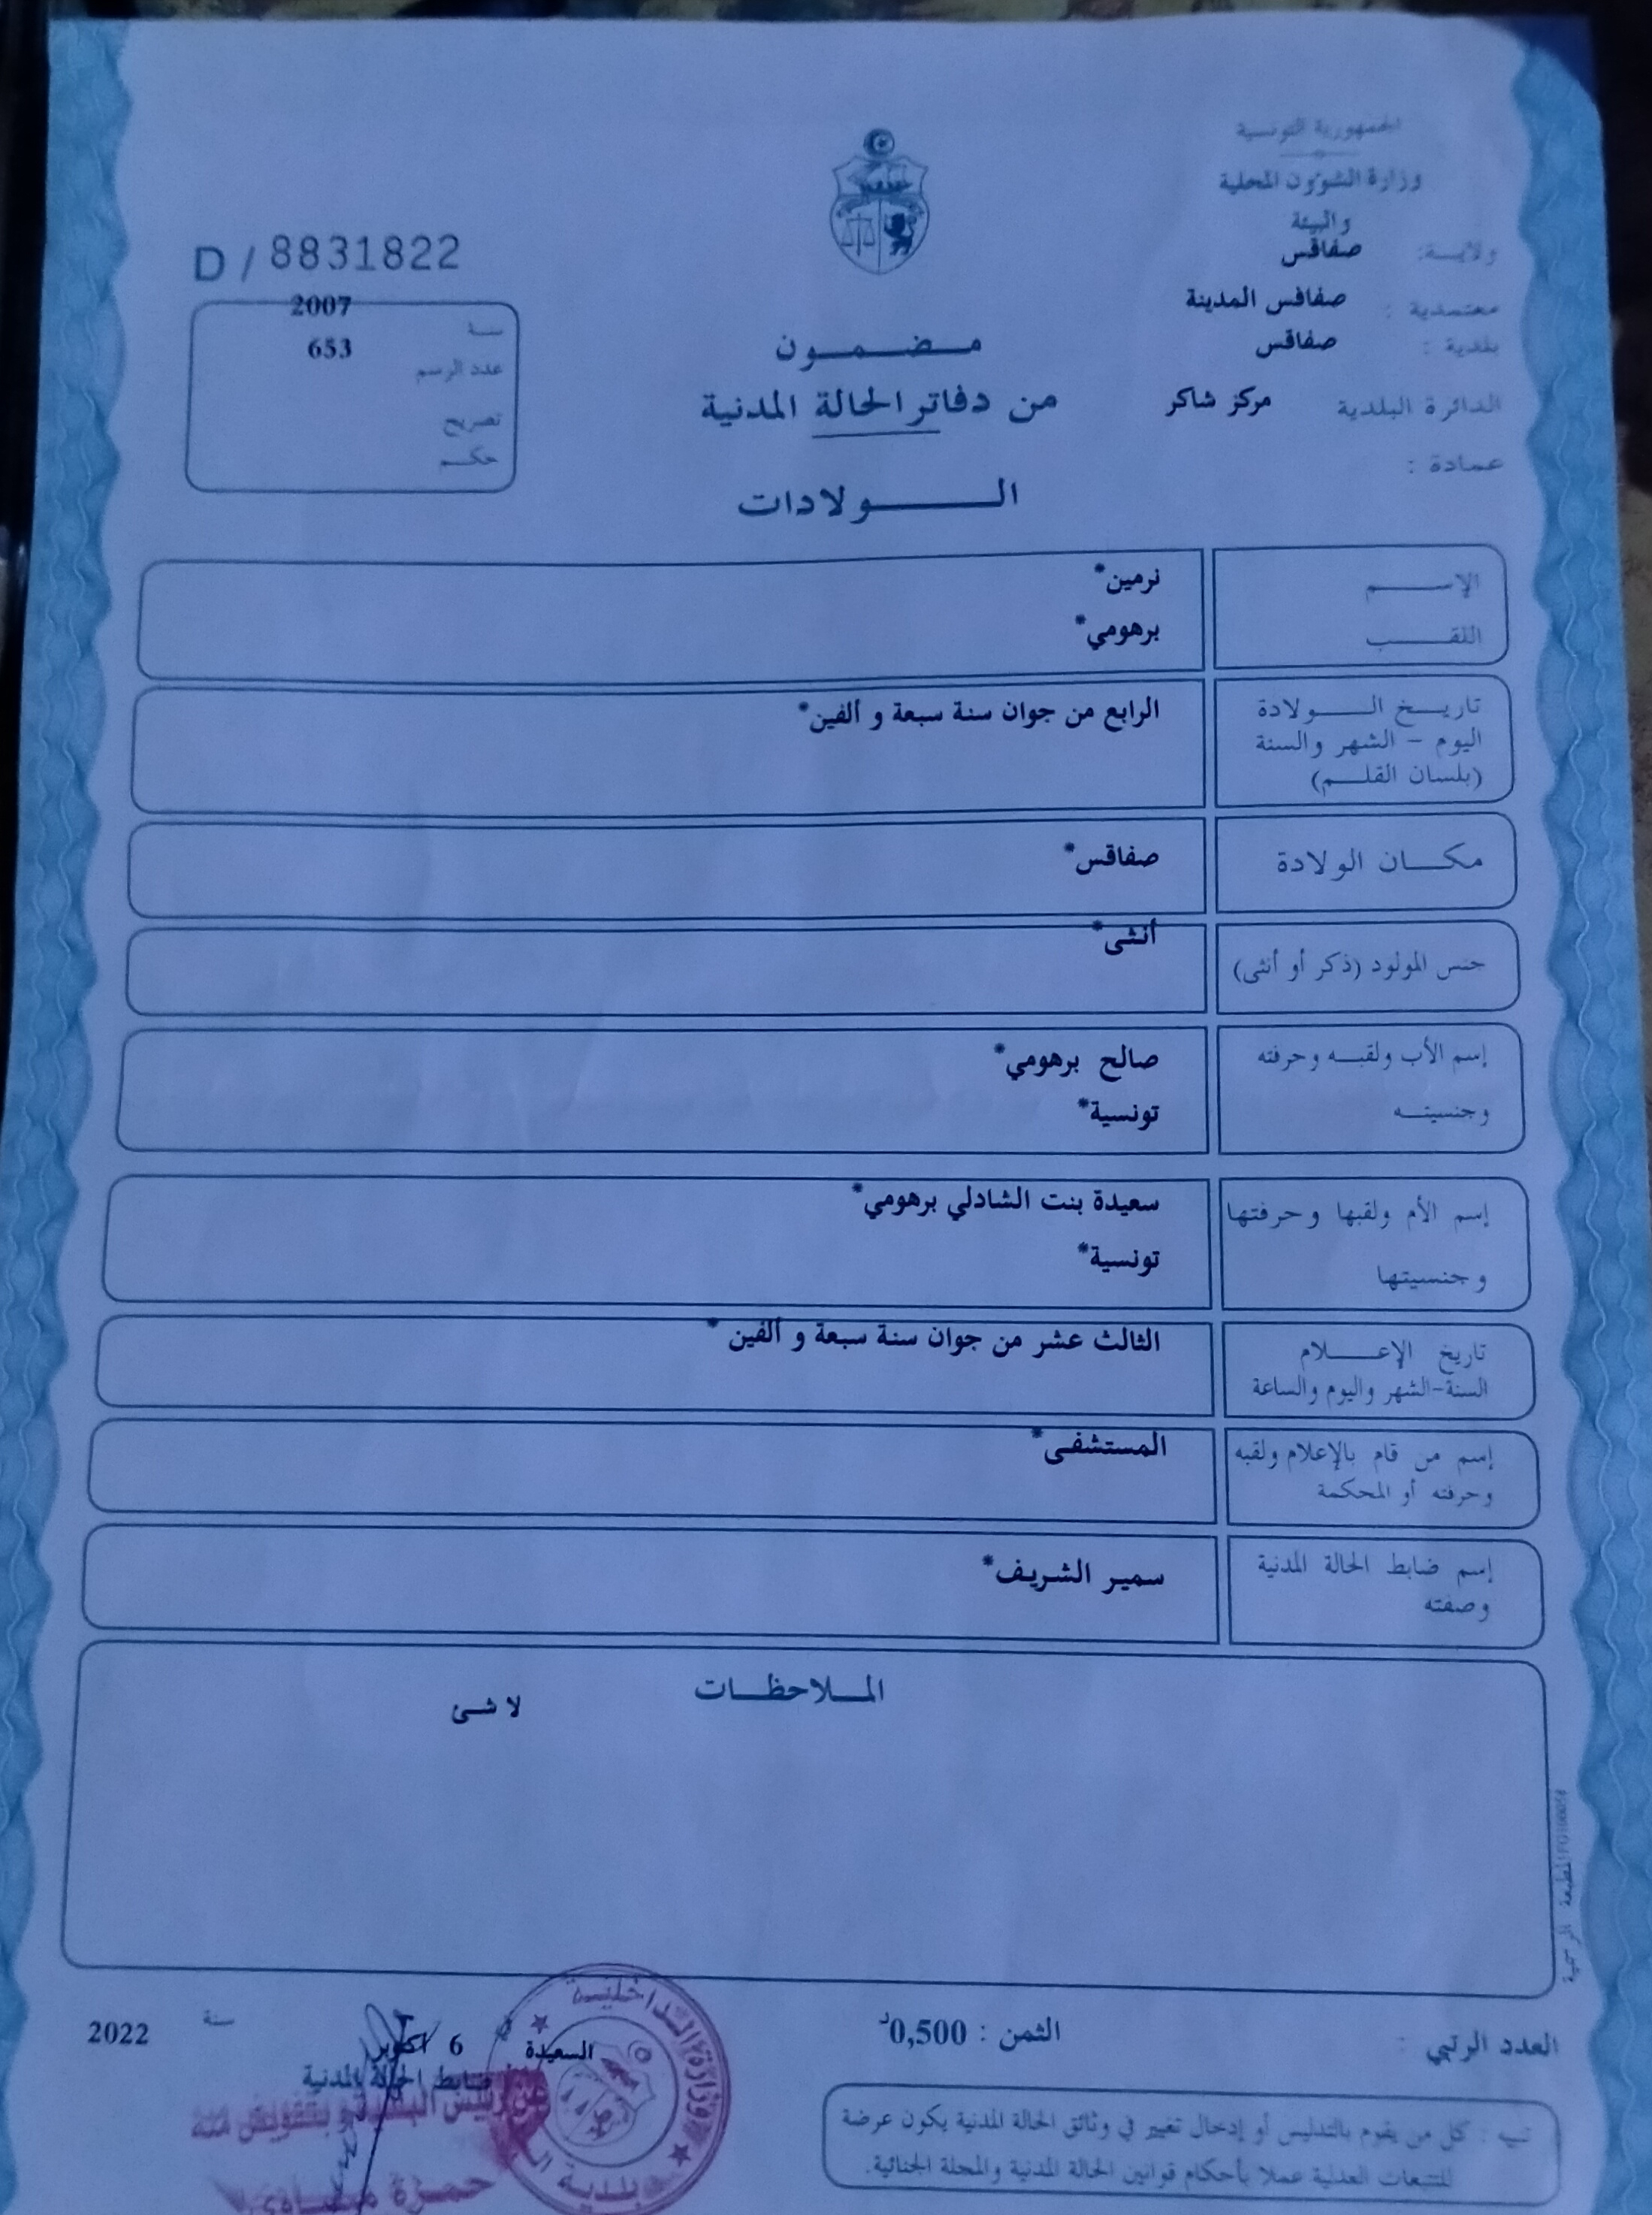 الجمهورية التونسية
وزارة الشؤون المحلية
والبيئة
ولايـــة: صفاقس
معتمدية : صفاقس المدينة
بلدية : صفاقس
الدائرة البلدية مركز شاكر
عمادة :
مـضـمـون
من دفاتر الحالة المدنية
الـــولادات
D / 8831822
سنة 2007
عدد الرسم 653
تصريح
حكم
الإســـم نرمين*
اللقـــب برهومي*
تاريـخ الـــولادة الرابع من جوان سنة سبعة و ألفين*
اليوم - الشهر والسنة
(بلسان القلـم)
مكـــان الولادة صفاقس*
جنس المولود (ذكر أو أنثى) أنثى*
إسم الأب ولقبـه وحرفته صالح برهومي*
وجنسيتـه تونسية*
إسم الأم ولقبها وحرفتها سعيدة بنت الشادلي برهومي*
وجنسيتها تونسية*
تاريخ الإعـــلام الثالث عشر من جوان سنة سبعة و ألفين *
السنة-الشهر واليوم والساعة
إسم من قام بالإعلام ولقبه المستشفى*
وحرفته أو المحكمة
إسم ضابط الحالة المدنية سمير الشريف*
وصفته
المـلاحظـات
لا شئ
المطبعة الرسمية
العدد الرتبي :
الثمن : 0,500د
السعيدة 6 اكتوبر سنة 2022
ضابط الحالة المدنية
عن رئيس البلدية و بتفويض منه
حمزة
وزارة الداخلية
بلدية
تنبيه : كل من يقوم بالتدليس أو إدخال تغيير في وثائق الحالة المدنية يكون عرضة
للتتبعات العدلية عملا بأحكام قوانين الحالة المدنية والمجلة الجنائية.